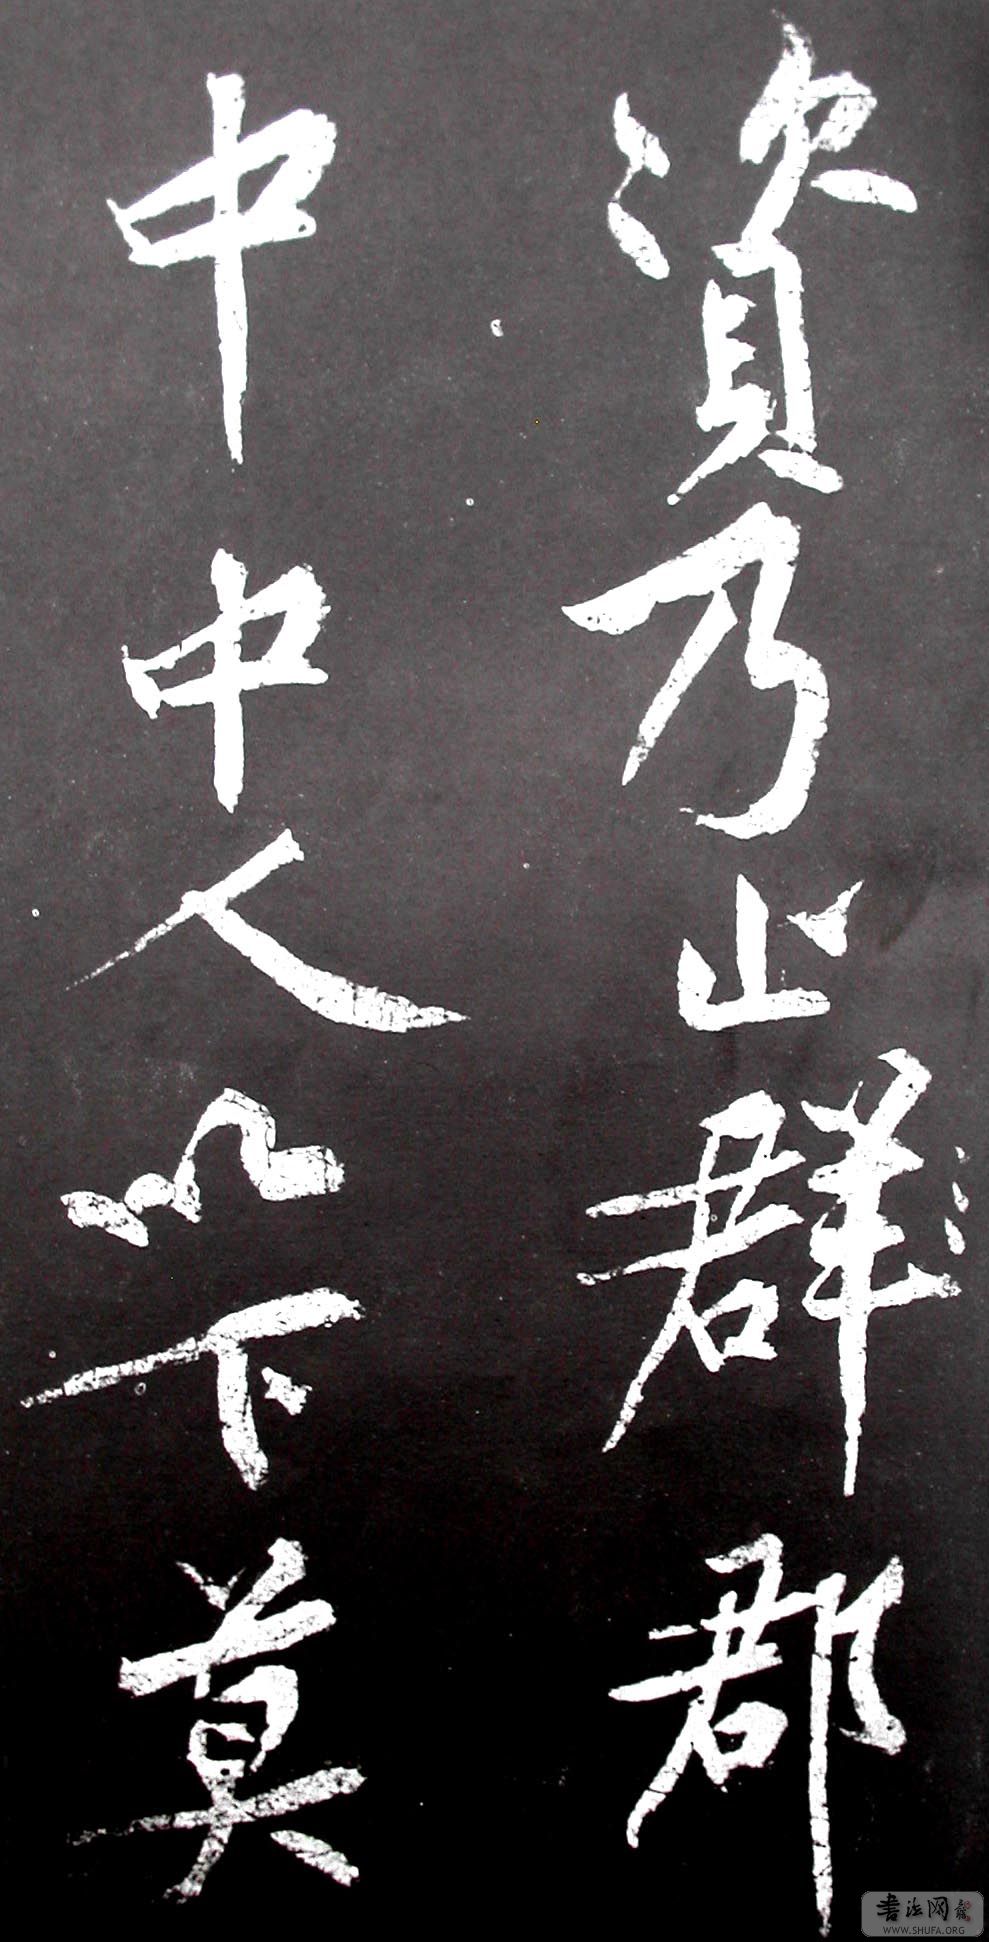 資乃止群郡
中中人以下莫
书法网
WWW.SHUFA.ORG